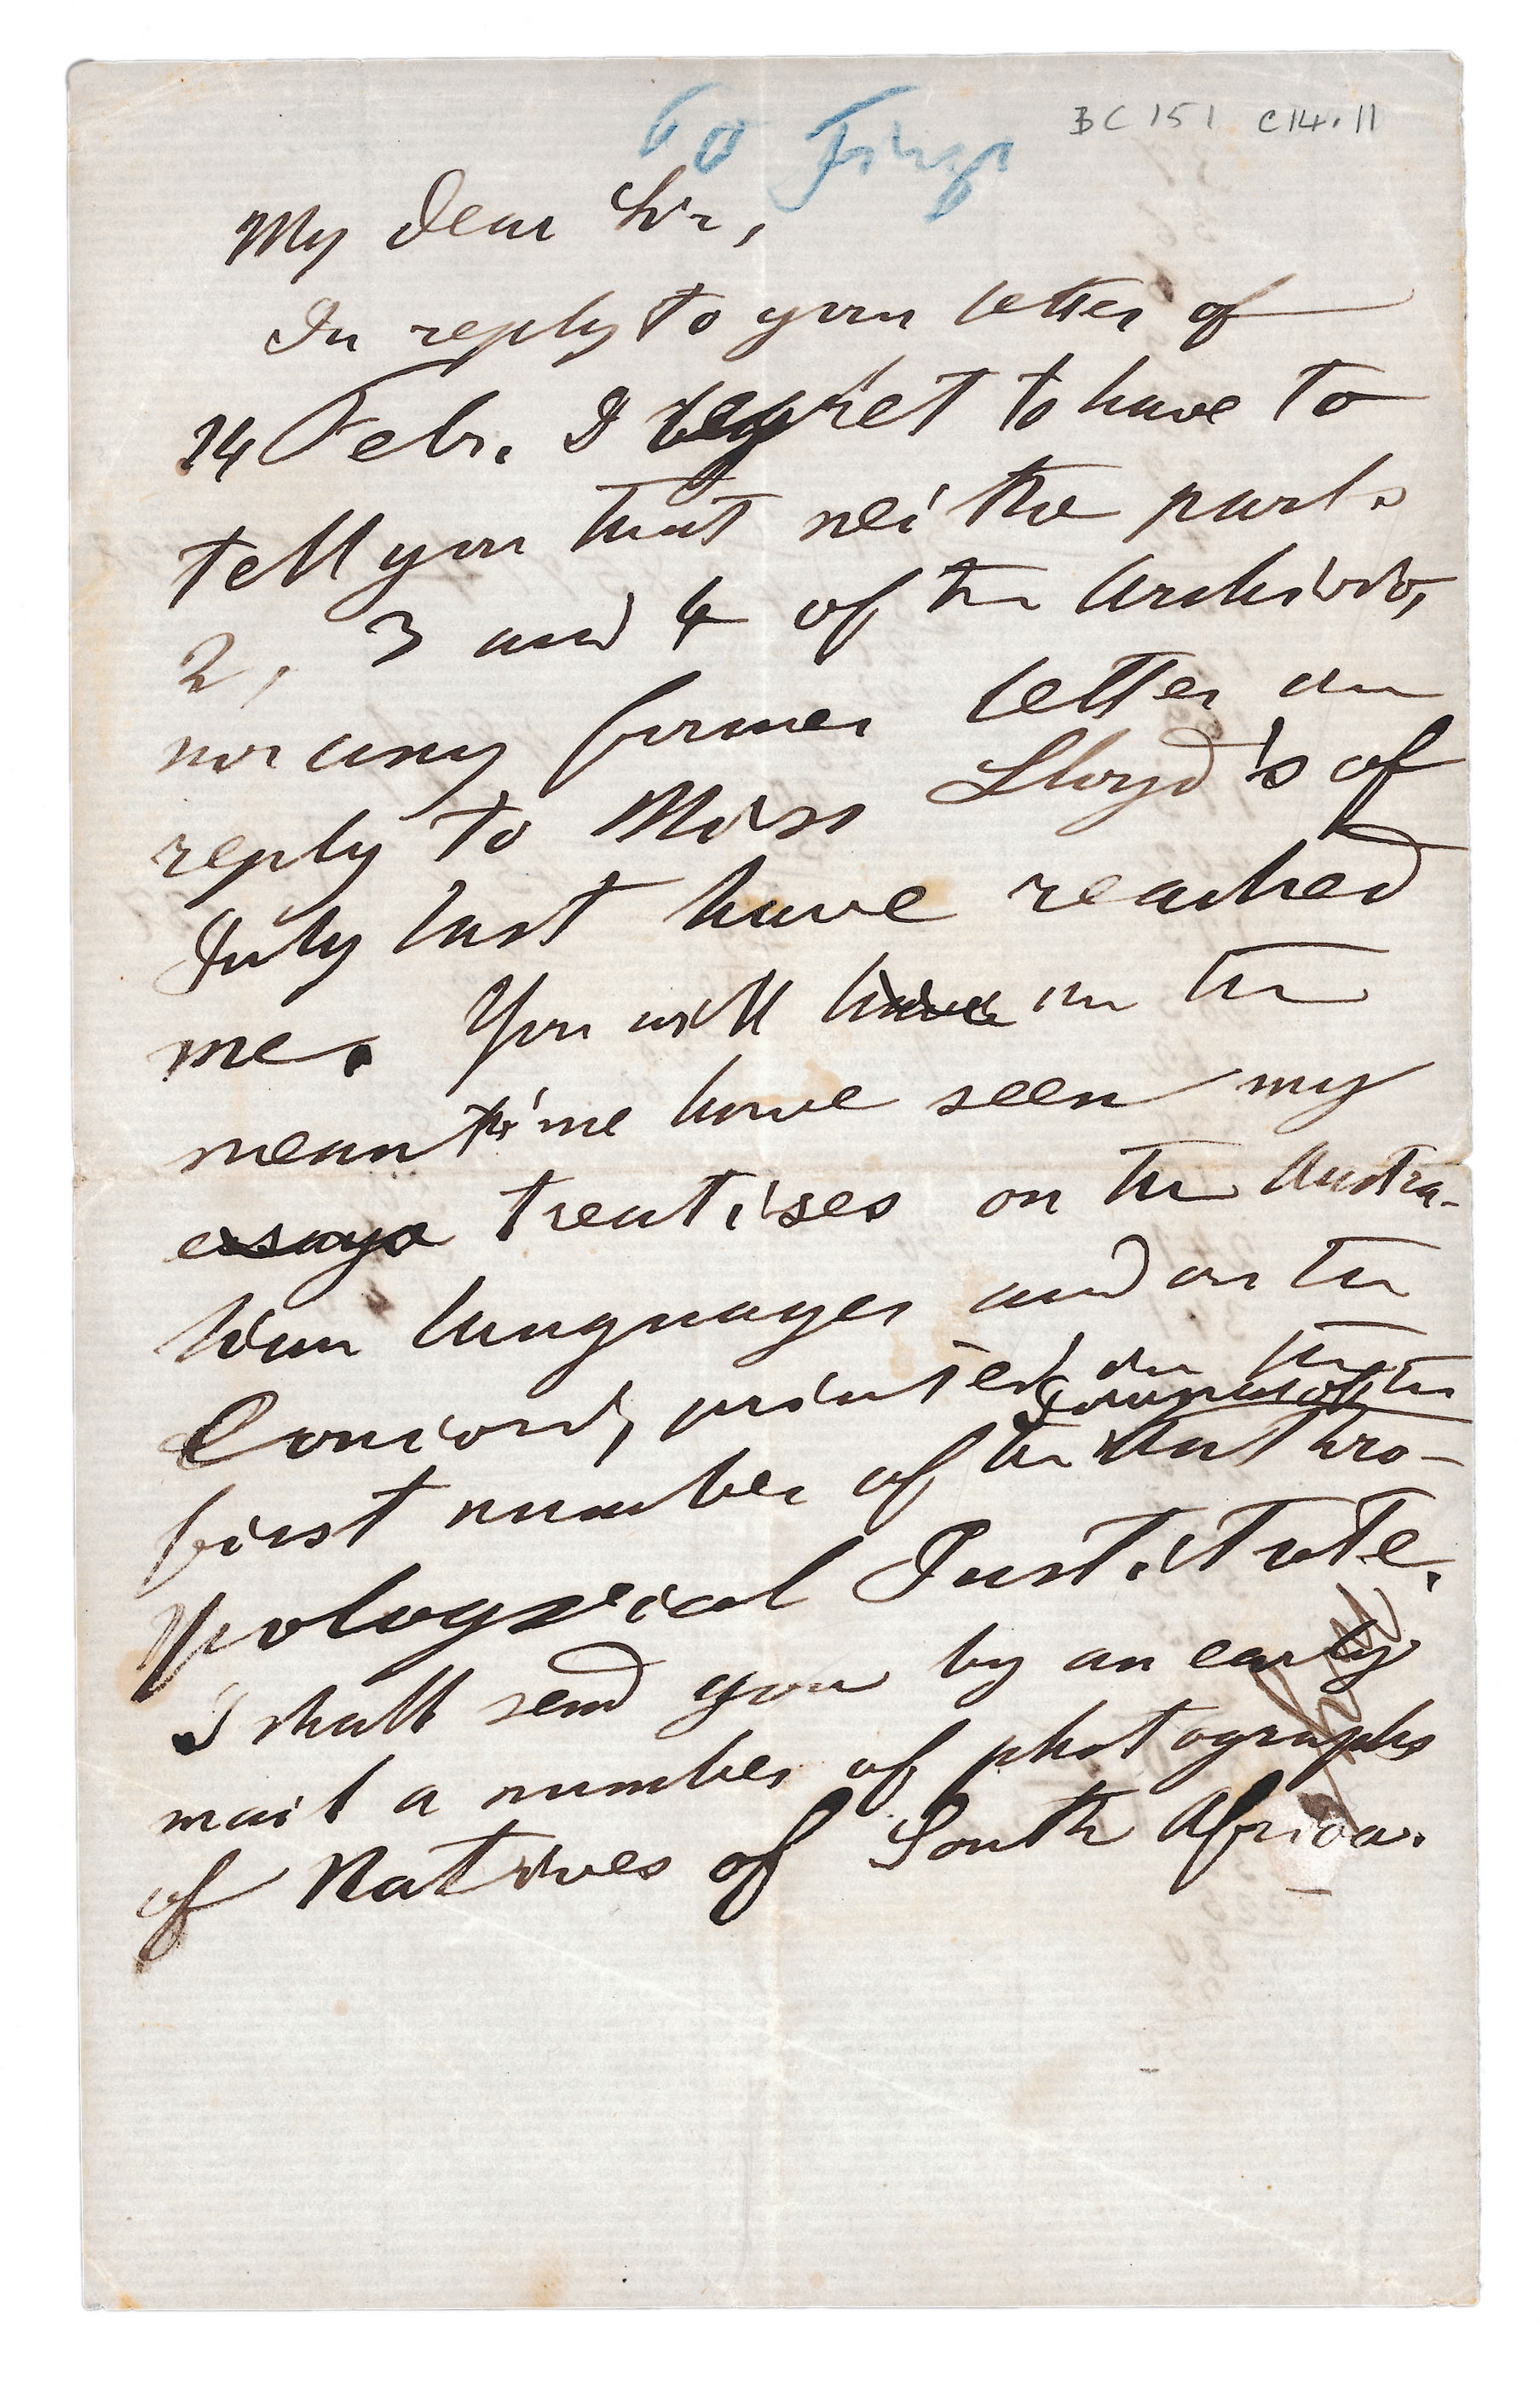 To Finzi
BC 151 C14.11
My dear Sir,
In reply to your letter of
14 Febr. I regret to have to
tell you that neither parts
2, 3 and 4 of the Archivio,
nor any former letter in
reply to Miss Lloyd's of
July last have reached
me. You will have in the
meantime have seen my
essays treatises on the Austra-
lian languages and on the
Concord, printed in the
Journal of the
first number of the Anthro-
pological Institute.
I shall send you by an early
mail a number of photographs
of Natives of South Africa.